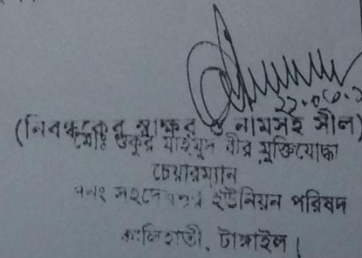 ২২.০৬.২
(নিবন্ধকের স্বাক্ষর ও নামসহ সীল)
মোঃ শুকুর মাহমুদ বীর মুক্তিযোদ্ধা
চেয়ারম্যান
ইউনিয়ন পরিষদ
কালিহাতী, টাঙ্গাইল।